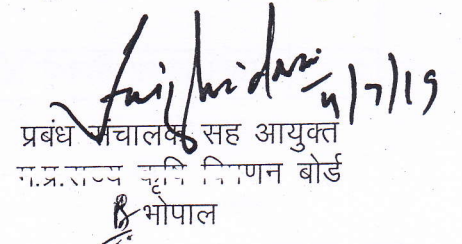 4/7/19
प्रबंध संचालक सह आयुक्त
म.प्र. राज्य कृषि विपणन बोर्ड
भोपाल